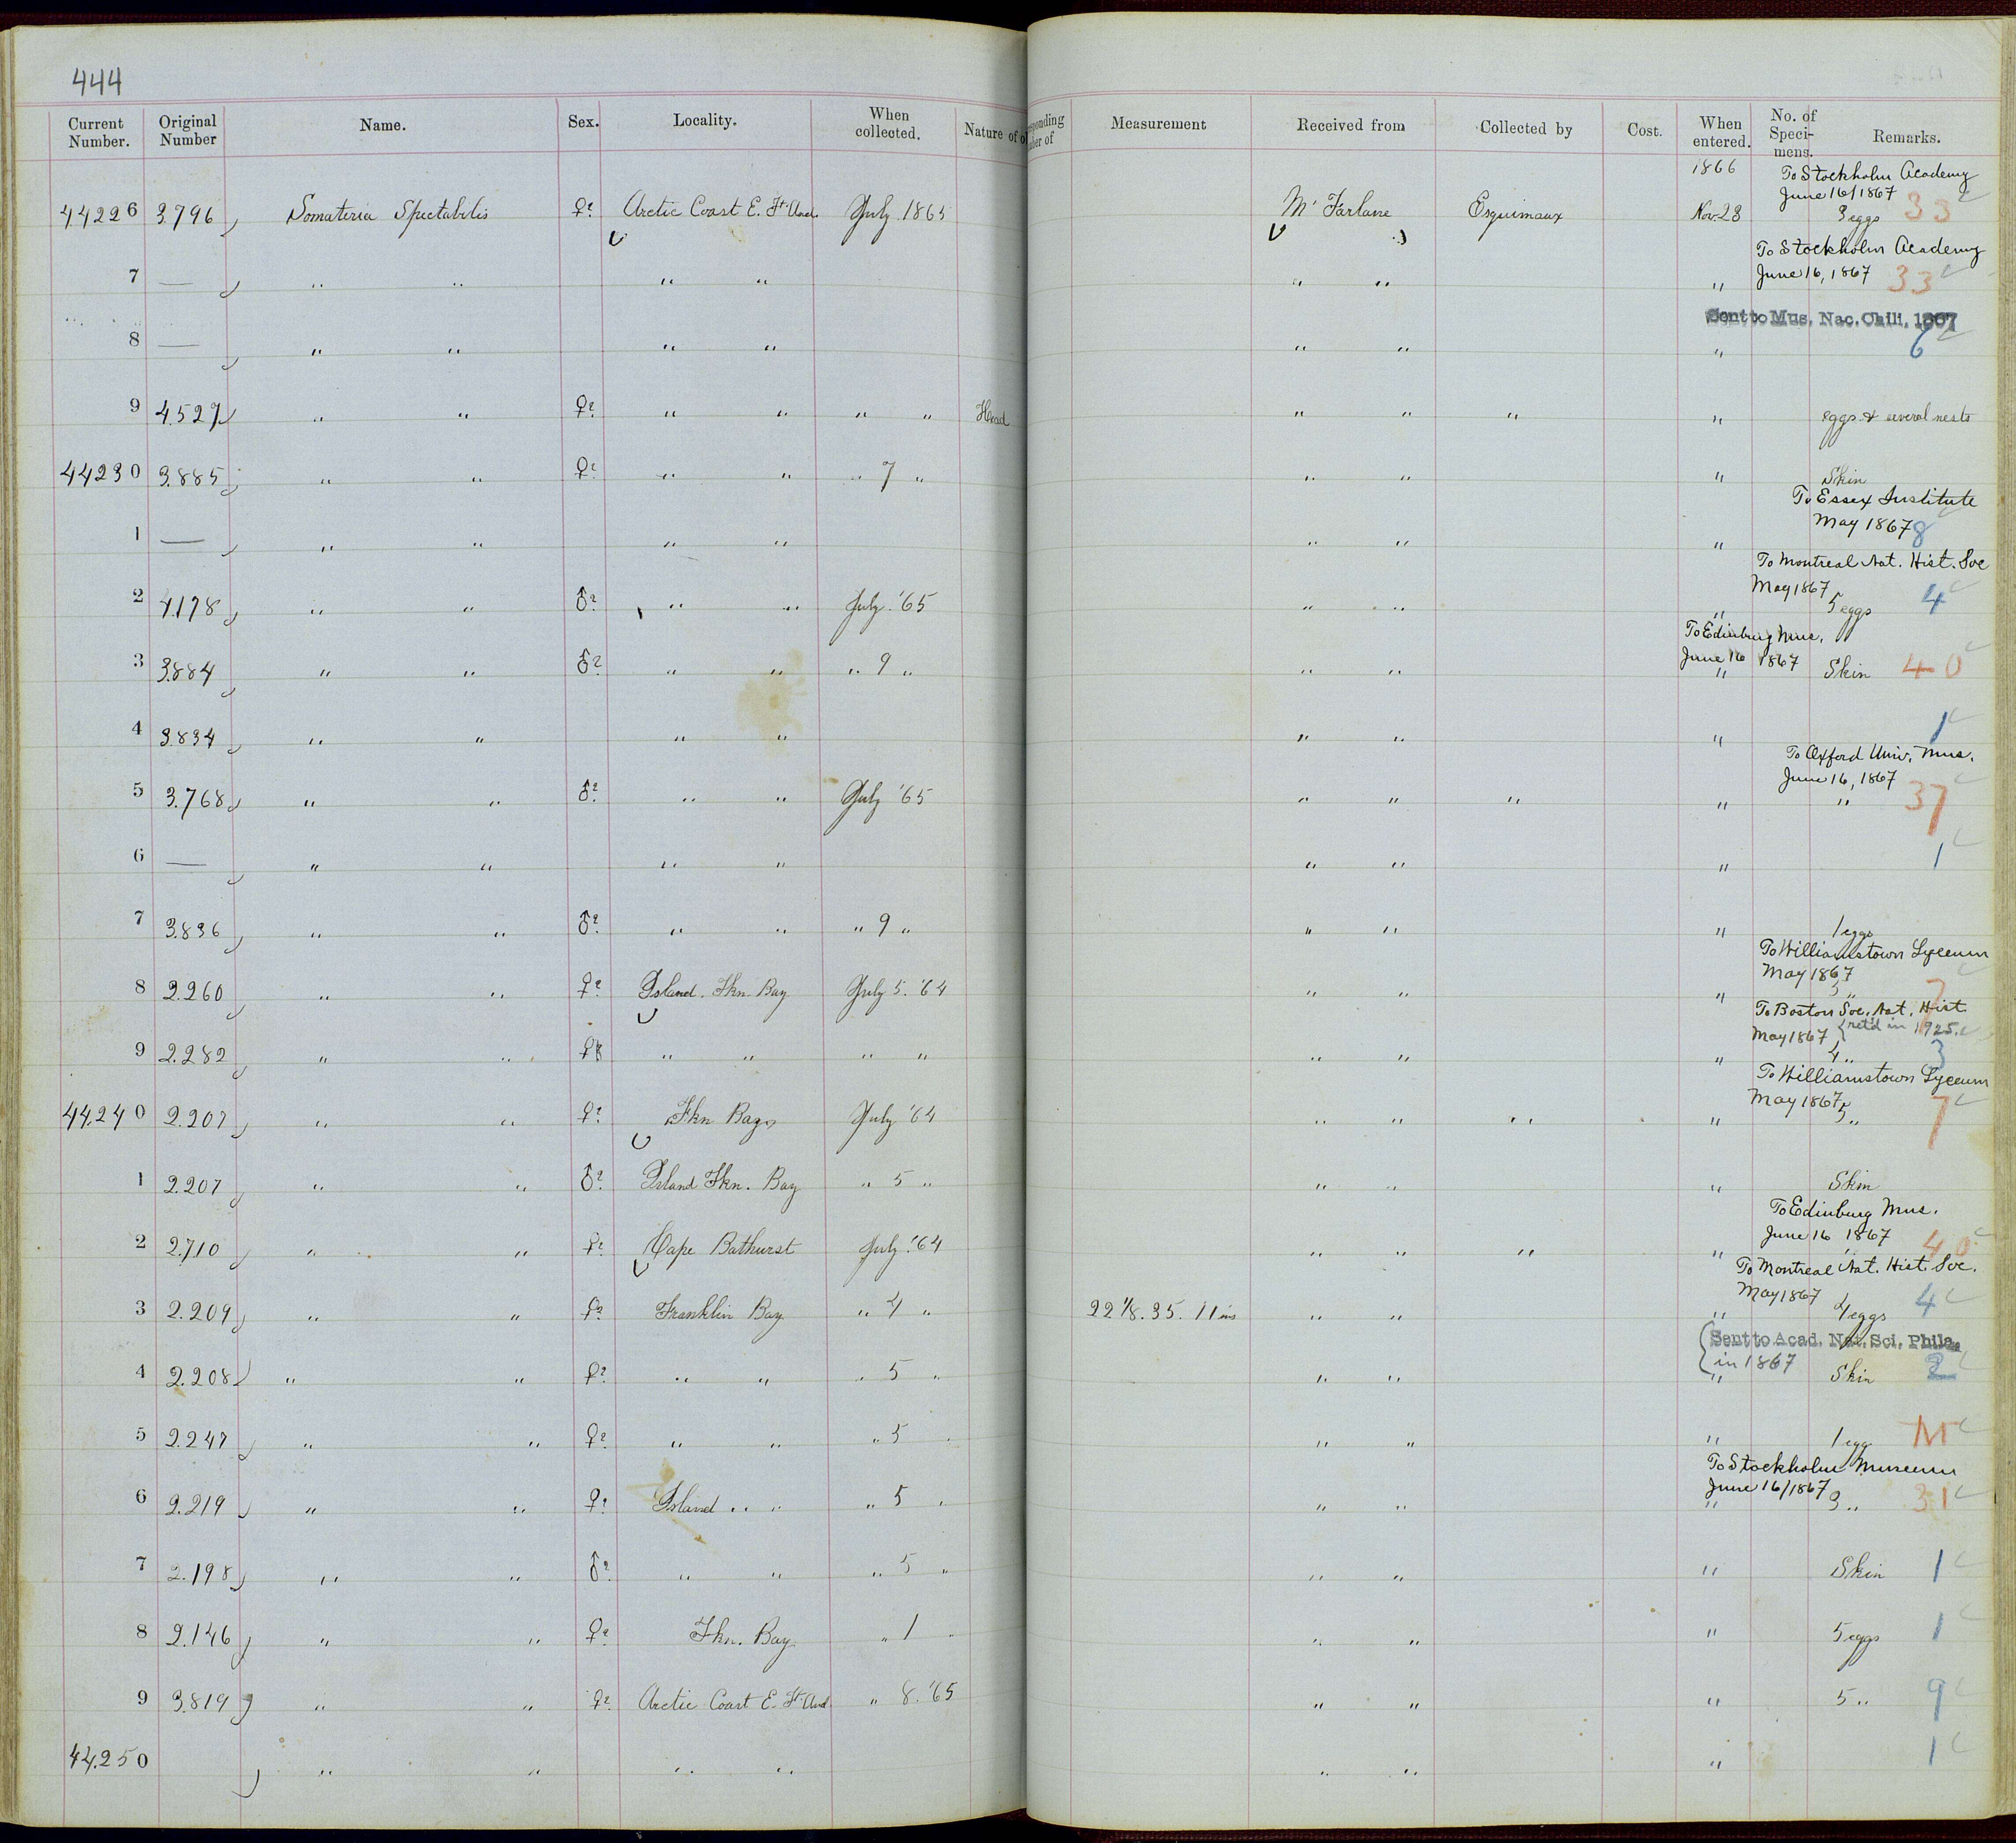 444
Current Number. Original Number Name. Sex. Locality. When collected. Nature of Measurement Received from Collected by Cost. When entered. No. of Specimens. Remarks.
1866 To Stockholm Academy
June 16/1867 33
44226 3.796 Somateria Spectabilis ♀? Arctic Coast E. Ft. And. July 1865 McFarlane Esquimaux Nov 28 3 eggs
To Stockholm Academy
7 — " " " " " " " June 16, 1867 33
Sent to Mus. Nac. Chili, 1867
8 — " " " " " " " 6
9 4.527 " " ♀? " " " " Head " " " " eggs & several nests
44230 3.885 " " ♀? " " " 7 " " " " Skin
To Essex Institute
May 1867 8
1 — " " " " " " "
To Montreal Nat. Hist. Soc
May 1867
2 4.178 " " ♂? " " July '65 " " " 5 eggs 4
To Edinburg Mus.
June 16 1867
3 3.884 " " ♂? " " " 9 " " " " Skin 40
4 3.834 " " " " " " " 1
To Oxford Univ. Mus.
June 16, 1867
5 3.768 " " ♂? " " July '65 " " " " " 37
6 — " " " " " " " 1
7 3.836 " " ♂? " " " 9 " " " " 1 eggs
To Williamstown Lyceum
May 1867
8 2.260 " " ♀? Island. Fkn Bay July 5. '64 " " " 3 " 7
To Boston Soc. Nat. Hist
May 1867 {ret'd in 1925.
9 2.282 " " ♀? " " " " " " " 4 " 3
To Williamstown Lyceum
May 1867
44,240 2.207 " " ♀? Fkn Bay July '64 " " " " " 5 " 7
1 2.207 " " ♂? Island Fkn. Bay " 5 " " " " Skin
To Edinburg Mus.
June 16 1867
2 2.710 " " ♀? Cape Bathurst July '64 " " " " 40
To Montreal Nat. Hist. Soc.
May 1867
3 2.209 " " ♀? Franklin Bay " 4 " 22 1/8. 35. 11 ins " " " 4 eggs 4
Sent to Acad. Nat. Sci. Phila.
in 1867
4 2.208 " " ♀? " " " 5 " " " " Skin 2
5 2.247 " " ♀? " " " 5 " " " " 1 egg M
To Stockholm Museum
June 16/1867
6 2.219 " " ♀? Island " " " 5 " " " " 3 " 31
7 2.198 " " ♂? " " " 5 " " " " Skin 1
8 2.146 " " ♀? Fkn. Bay " 1 " " " " 5 eggs 1
9 3.819 " " ♀? Arctic Coast E. Ft. And " 8. '65 " " " 5 " 9
44,250 " " " " " " " 1